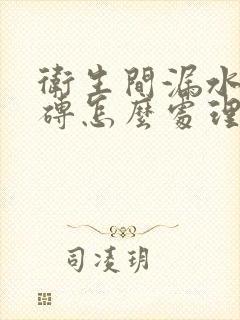 衛生間漏水
磚怎麼處理
司凌玥